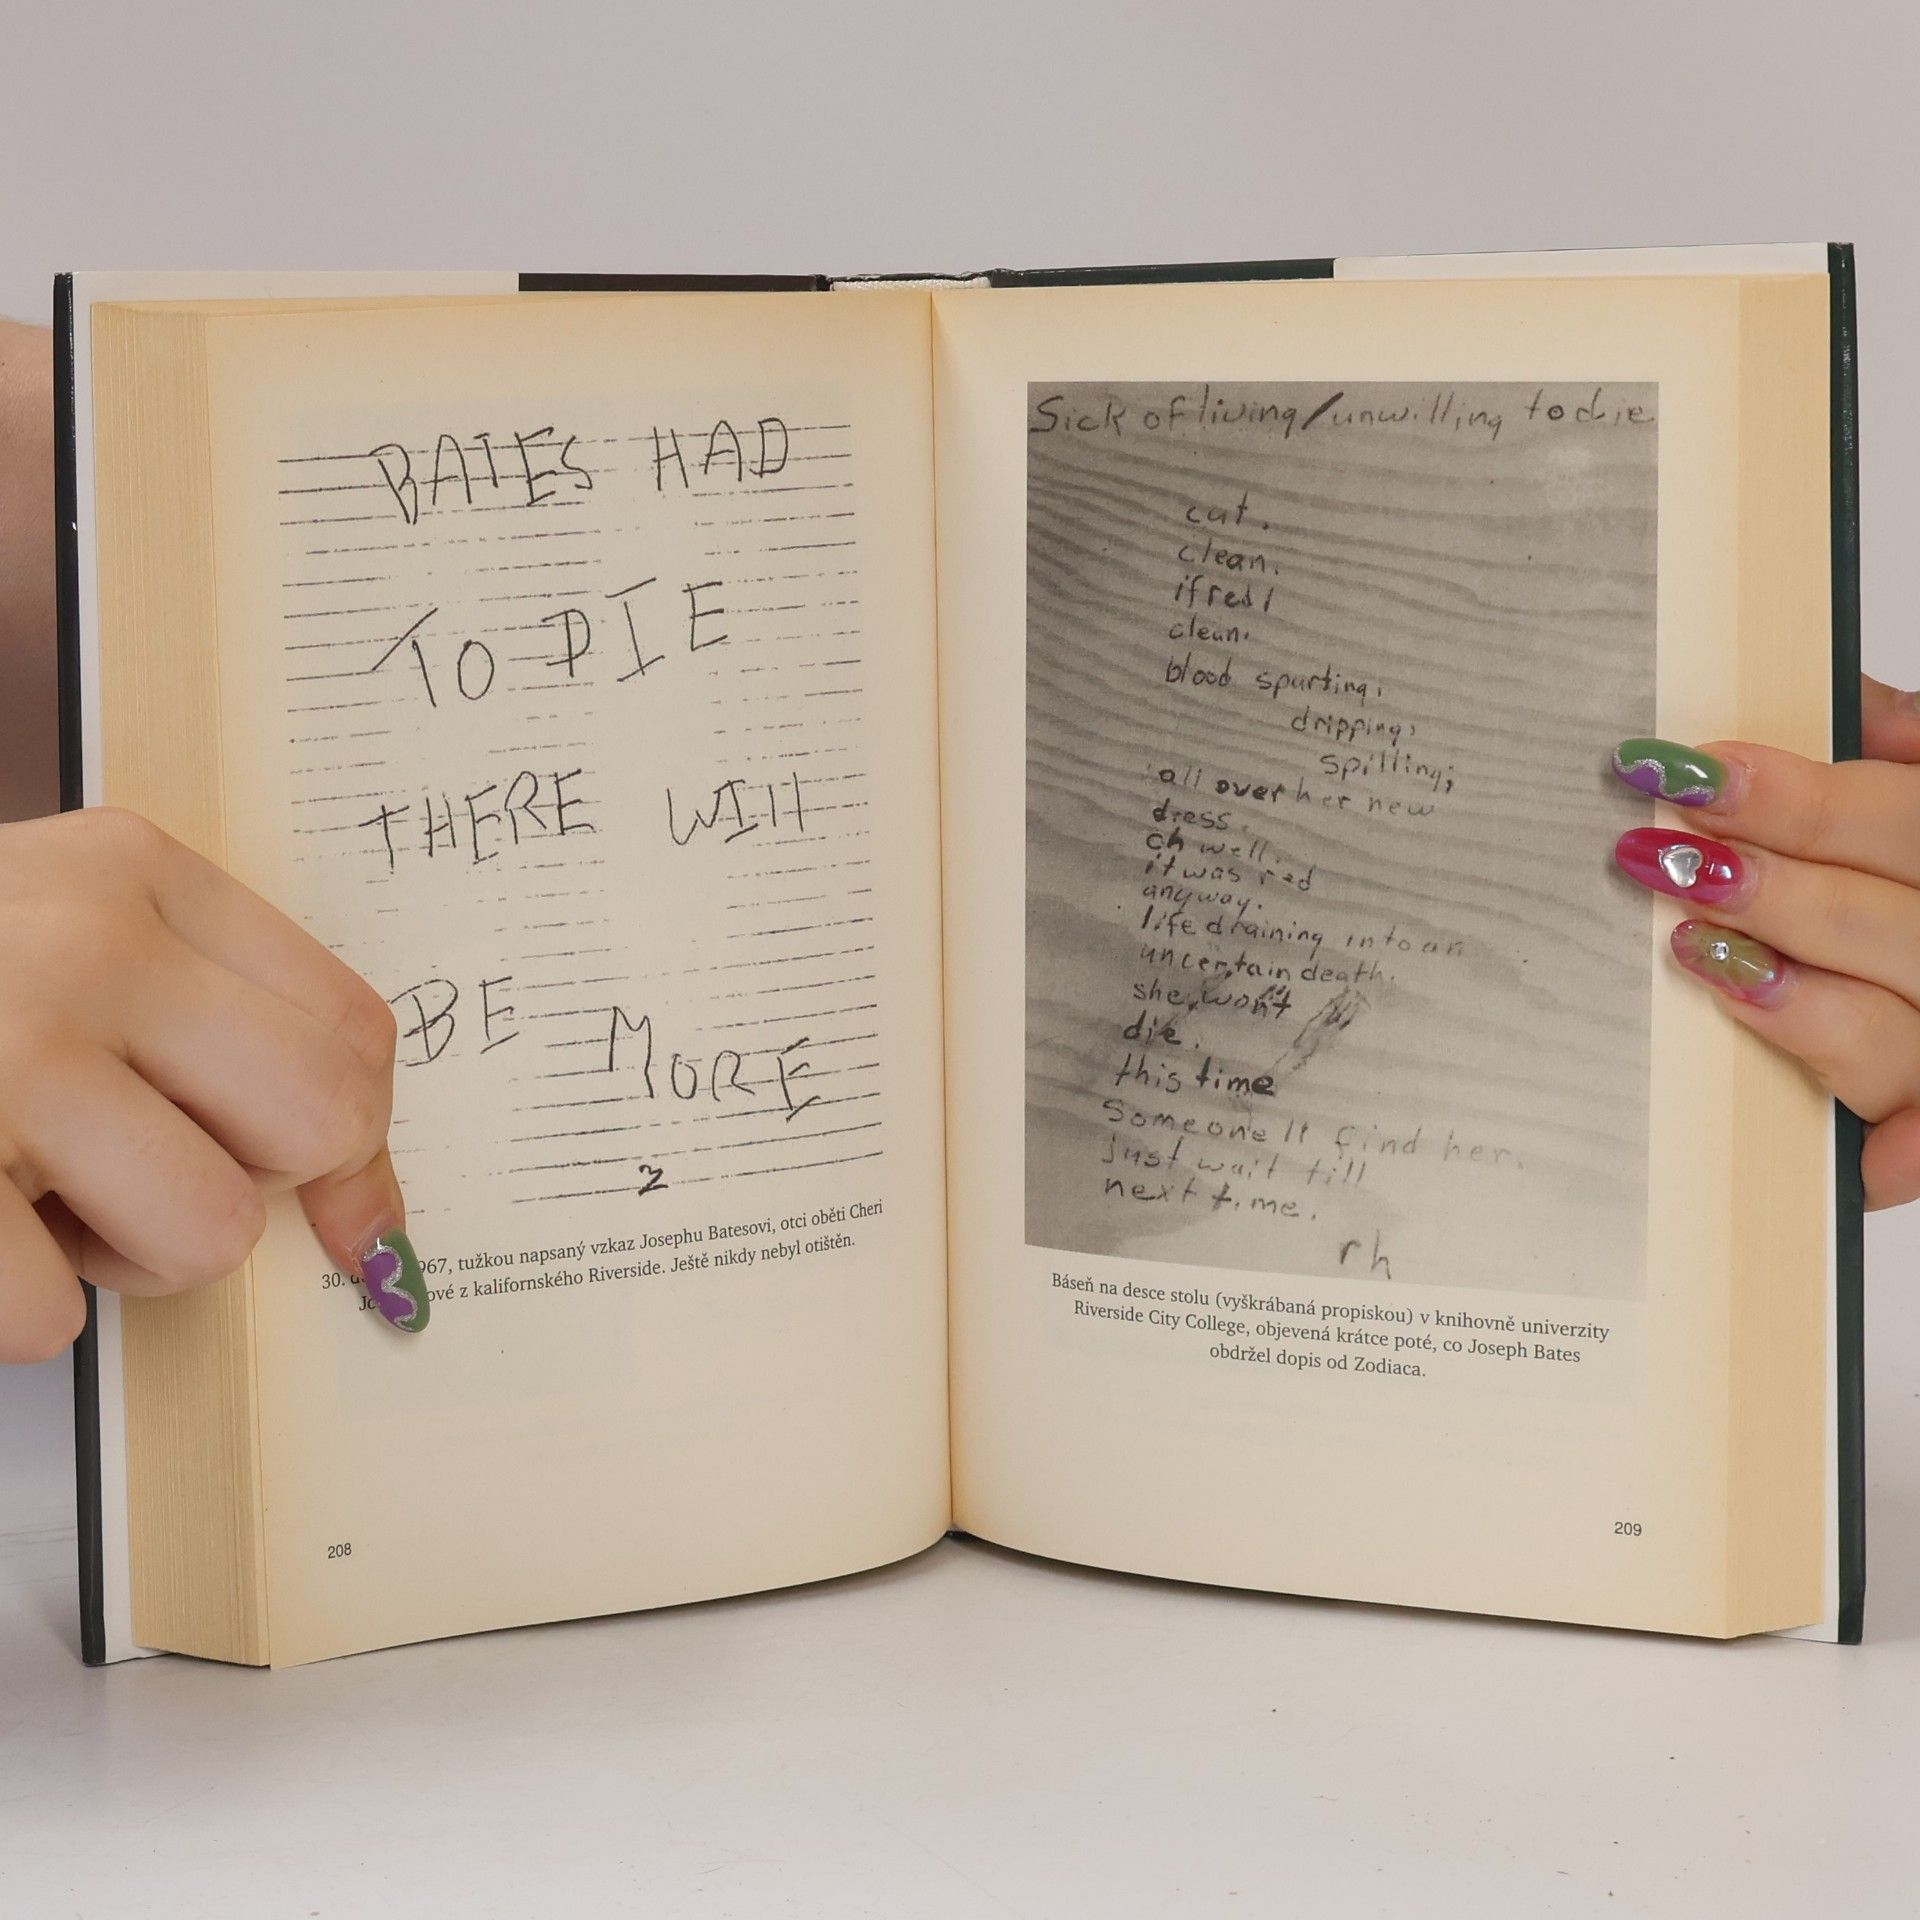 BATES HAD
TO DIE
THERE WILL
BE MORE
Z
30. 967, tužkou napsaný vzkaz Josephu Batesovi, otci oběti Cheri
ové z kalifornského Riverside. Ještě nikdy nebyl otištěn.
208
Sick of living/unwilling to die
cut.
clean.
if red/
clean.
blood spurting,
dripping,
spilling;
all over her new
dress.
oh well.
it was red
anyway.
life draining into an
uncertain death.
she won't
die.
this time
Someone ll find her.
just wait till
next time.
rh
Báseň na desce stolu (vyškrábaná propiskou) v knihovně univerzity
Riverside City College, objevená krátce poté, co Joseph Bates
obdržel dopis od Zodiaca.
209